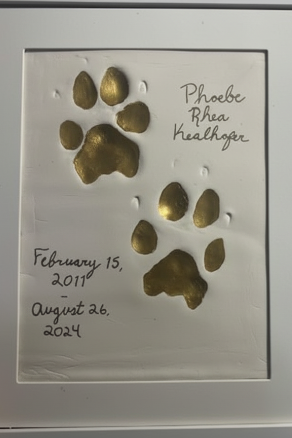 Phoebe
Rhea
Kealhofer
February 15,
2011
-
August 26,
2024